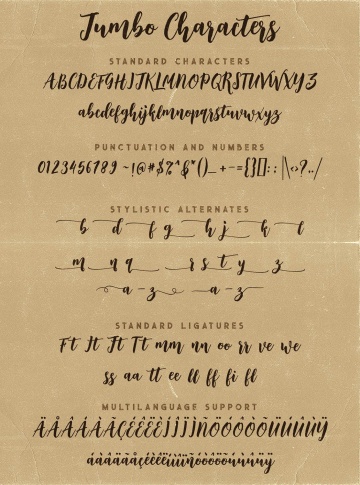 Jumbo Characters
STANDARD CHARACTERS
ABCDEFGHIJKLMNOPQRSTUVWXYZ
abcdefghijklmnopqrstuvwxyz
PUNCTUATION AND NUMBERS
0123456789 ~!@#$%^&*()_+-={}[]:;|\<>?,./
STYLISTIC ALTERNATES
b d f g h j k l
m n q r s t y z
a-z a-z
STANDARD LIGATURES
Ft It Jt Tt mm nn oo rr ve we
ss aa tt ee ll ff fi fl
MULTILANGUAGE SUPPORT